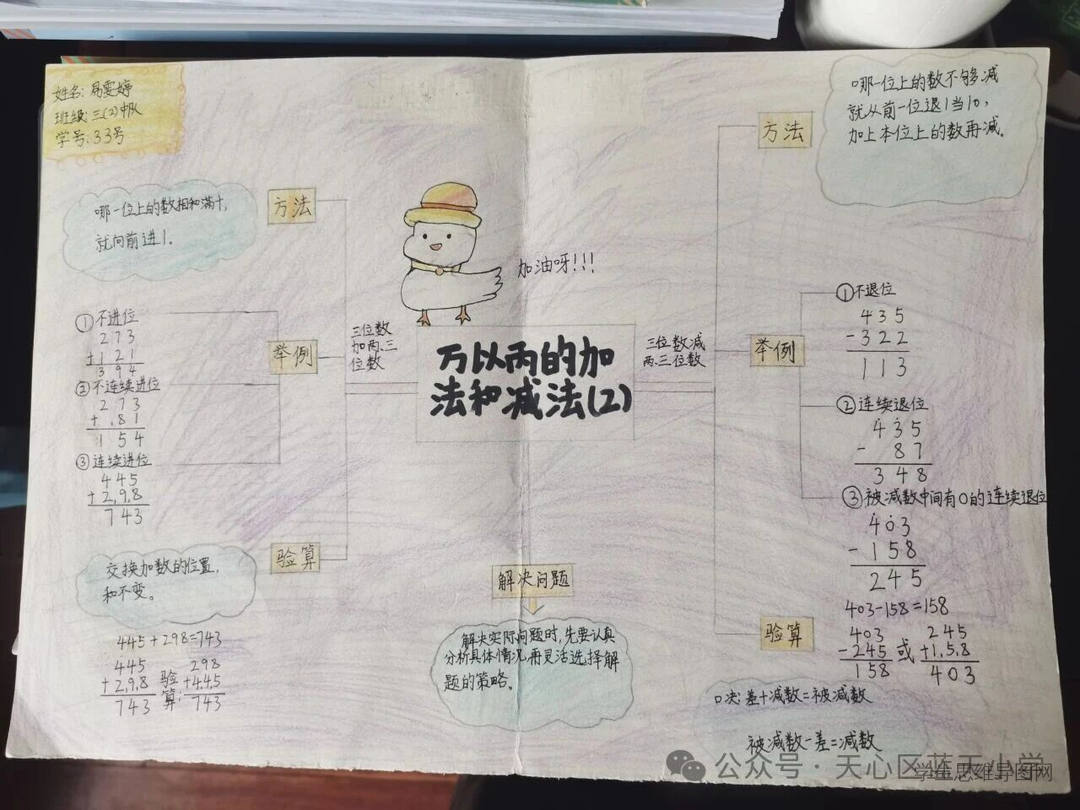 姓名:易雯婷
班级:三(2)中队
学号:33号
方法
哪一位上的数相和满十,
就向前进1.
举例
① 不进位
273
+121
394
② 不连续进位
273
+.81
154
③ 连续进位
445
+2.9.8
743
验算
交换加数的位置,
和不变。
445+298=743
445
+2.9.8
743
验
算:
298
+4.4.5
743
三位数
加两.三
位数
加油呀!!!
万以内的加
法和减法(2)
解决问题
解决实际问题时,先要认真
分析具体情况,再灵活选择解
题的策略。
三位数减
两.三位数
方法
哪一位上的数不够减
就从前一位退1当10,
加上本位上的数再减.
举例
①不退位
435
-322
113
②连续退位
435
- 87
348
③被减数中间有0的连续退位
403
-158
245
验算
403-158=158
403
-245
158
或
245
+1.5.8
403
口决:差+减数=被减数
被减数-差=减数
公众号·天心区蓝天小学
学生思维导图网